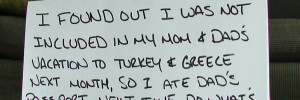 I FOUND OUT I WAS NOT
INCLUDED IN MY MOM & DAD'S
VACATION TO TURKEY & GREECE
NEXT MONTH, SO I ATE DAD'S
PASSPORT. NEXT TIME